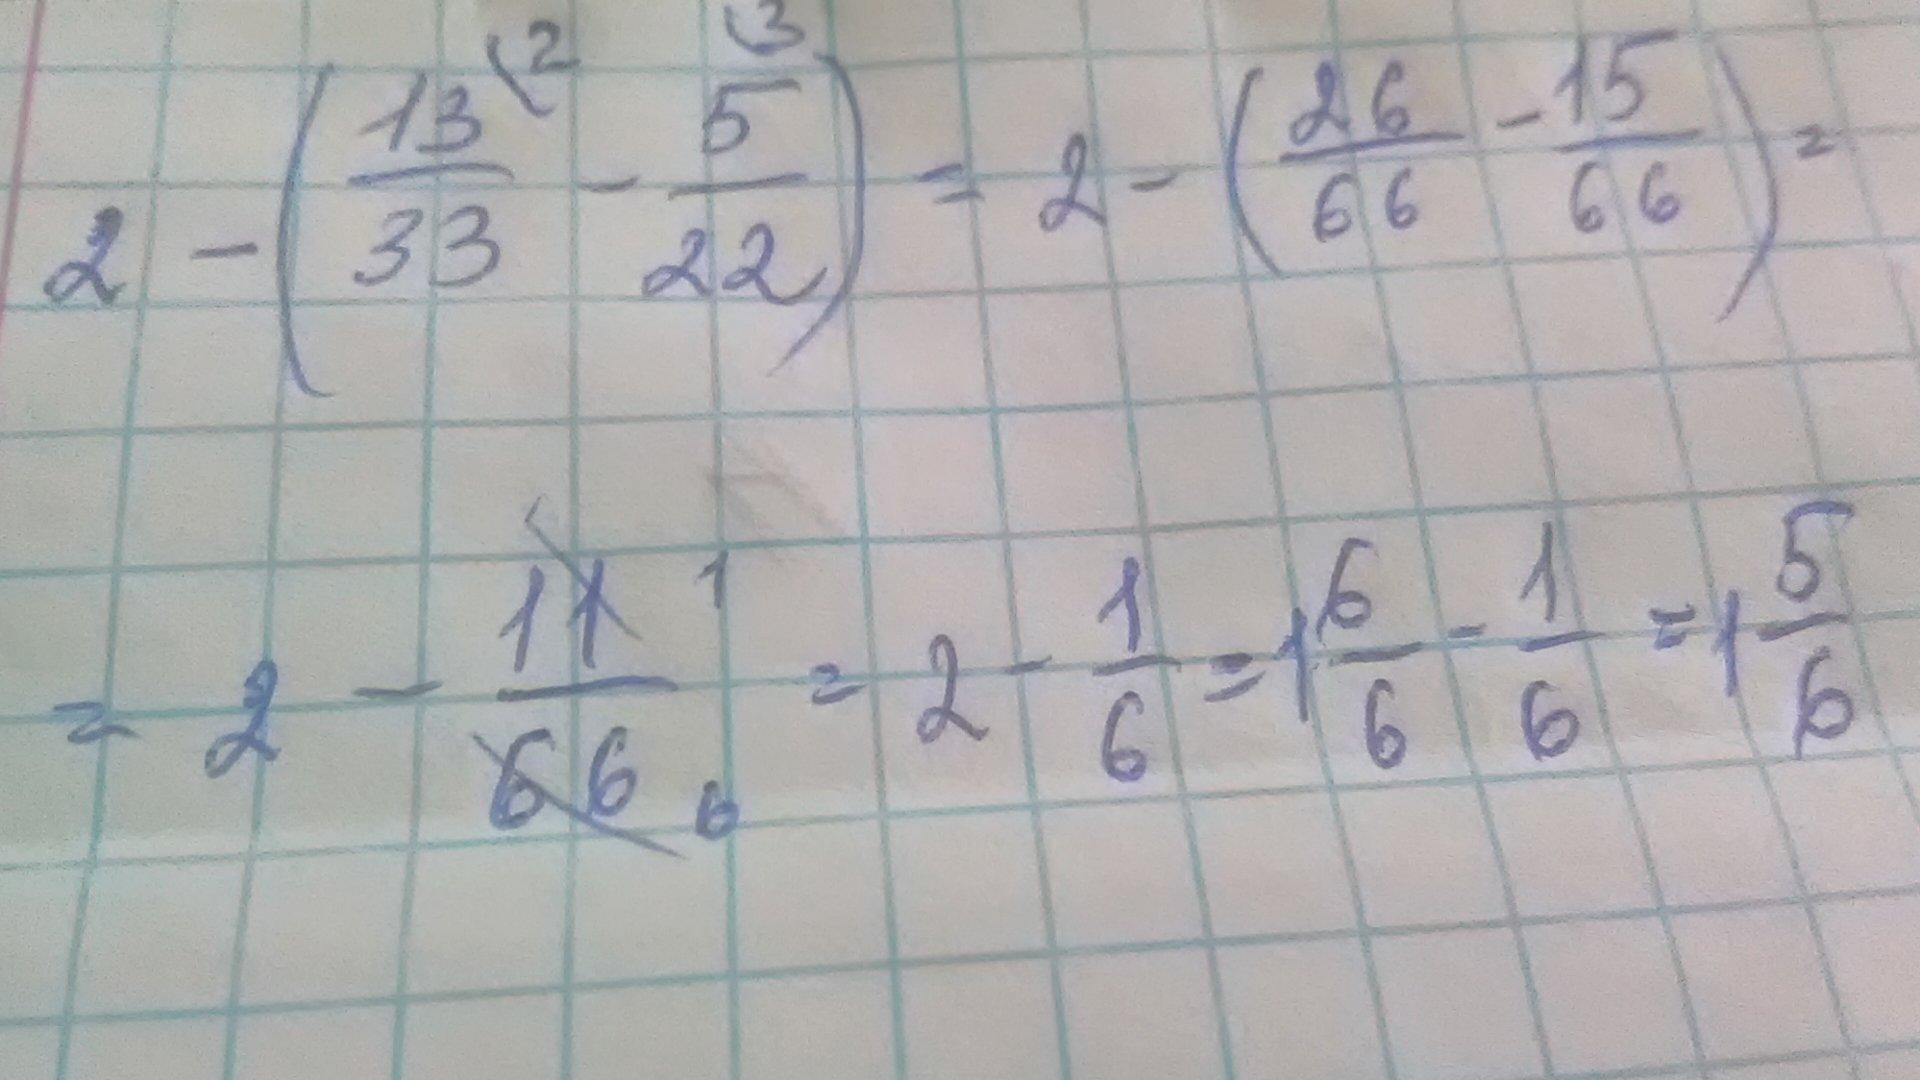 2 - (13/33 (2 - 5/22 (3) = 2 - (26/66 - 15/66) =
= 2 - 11/66 1/6 = 2 - 1/6 = 1 6/6 - 1/6 = 1 5/6